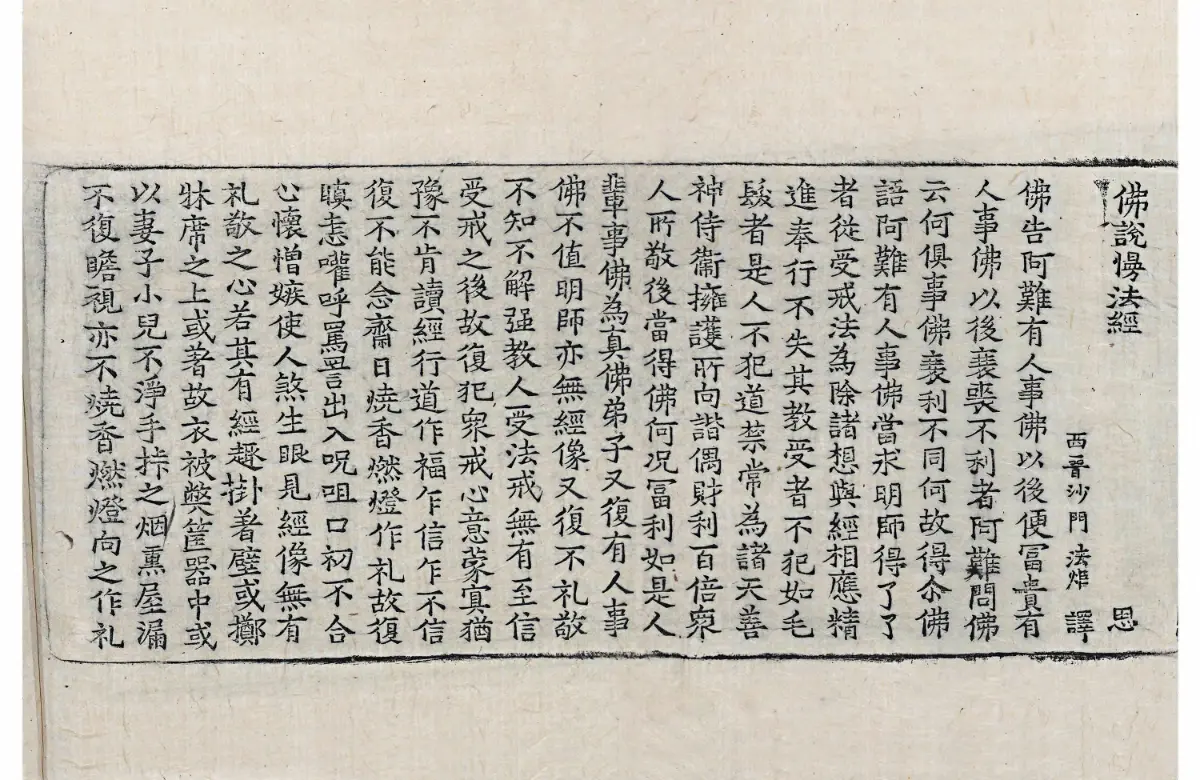 佛說慢法經
恩
西晉沙門法炬 譯
佛告阿難有人事佛以後便冨貴有
人事佛以後衰喪不利者阿難問佛
云何俱事佛衰利不同何故得尒佛
語阿難有人事佛當求明師得了了
者從受戒法為除諸想與經相應精
進奉行不失其教受者不犯如毛
髮者是人不犯道禁常為諸天善
神侍衞擁護所向諧偶財利百倍衆
人所敬後當得佛何況冨利如是人
輩事佛為真佛弟子又復有人事
佛不值明師亦無經像又復不礼敬
不知不解强教人受法戒無有至信
受戒之後故復犯衆戒心意蒙冥猶
豫不肯讀經行道作福乍信乍不信
復不能念齋日燒香燃燈作礼故復
瞋恚嚾呼罵詈出入呪咀口初不合
心懷憎嫉使人煞生眼見經像無有
礼敬之心若其有經趣掛著壁或擲
牀席之上或著故衣被弊篋器中或
以妻子小兒不淨手捽之烟熏屋漏
不復瞻視亦不燒香燃燈向之作礼